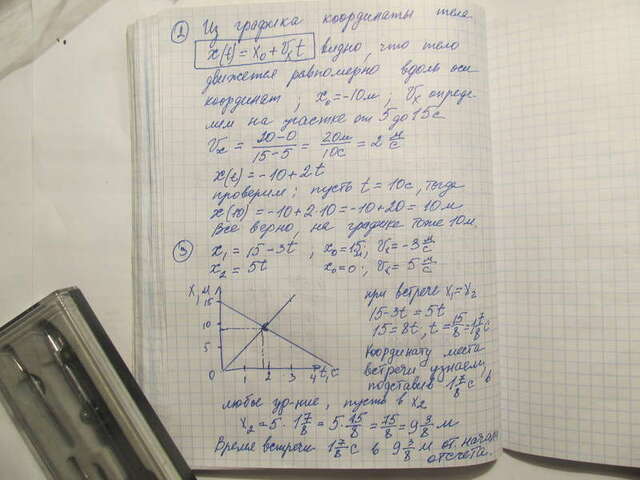 1 Из графика координаты тела
x(t) = x₀ + Vₓt видно, что тело
движется равномерно вдоль оси
координат, x₀ = -10м; Vₓ опреде-
лем на участке от 5 до 15с
Vₓ = 20-0/15-5 = 20м/10с = 2 м/с
x(t) = -10 + 2t
проверим: пусть t = 10с, тогда
x(10) = -10 + 2·10 = -10 + 20 = 10м
Все верно, на графике тоже 10м.
3 x₁ = 15 - 3t, x₀ = 15м; Vₓ = -3 м/с
x₂ = 5t x₀ = 0; Vₓ = 5 м/с
X, м
15
10
5
0 1 2 3 4 t, с
при встрече x₁ = x₂
15 - 3t = 5t
15 = 8t, t = 15/8 = 1 7/8 с
Координату места
встречи узнаем,
подставив 1 7/8 с в
любое ур-ние, пусть в x₂
x₂ = 5 · 1 7/8 = 5 · 15/8 = 75/8 = 9 3/8 м
Время встречи 1 7/8 с в 9 3/8 м от начала
отсчета.